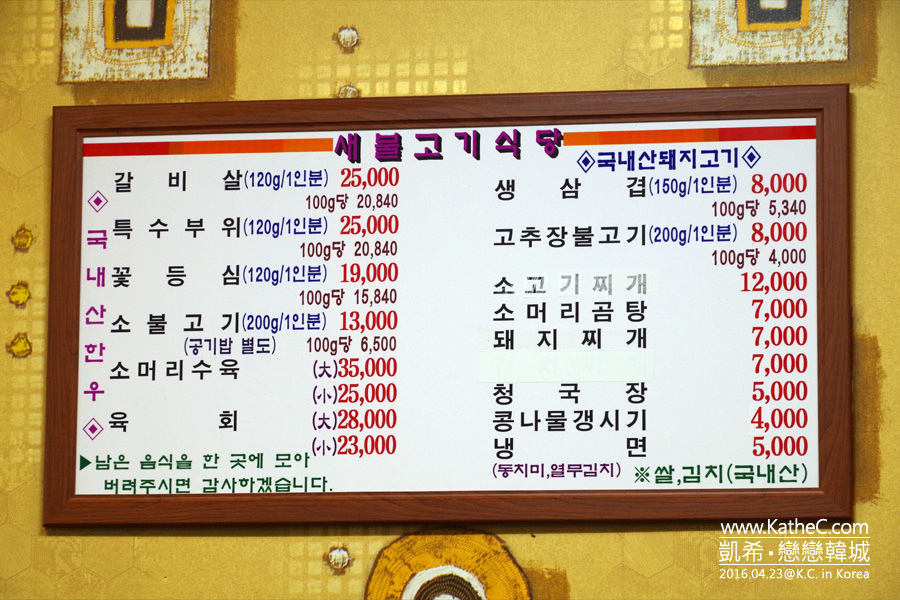 새불고기식당
◈국내산한우◈
갈비살(120g/1인분) 25,000
100g당 20,840
특수부위(120g/1인분) 25,000
100g당 20,840
꽃등심(120g/1인분) 19,000
100g당 15,840
소불고기(200g/1인분) 13,000
(공기밥 별도) 100g당 6,500
소머리수육 (大)35,000
(小)25,000
육회 (大)28,000
(小)23,000
▶남은 음식을 한 곳에 모아
버려주시면 감사하겠습니다.
◈국내산돼지고기◈
생삼겹(150g/1인분) 8,000
100g당 5,340
고추장불고기(200g/1인분) 8,000
100g당 4,000
소고기찌개 12,000
소머리곰탕 7,000
돼지찌개 7,000
7,000
청국장 5,000
콩나물갱시기 4,000
냉면 5,000
(동치미,열무김치)
※쌀,김치(국내산)
www.KatheC.com
凱希·戀戀韓城
2016.04.23@K.C. in Korea